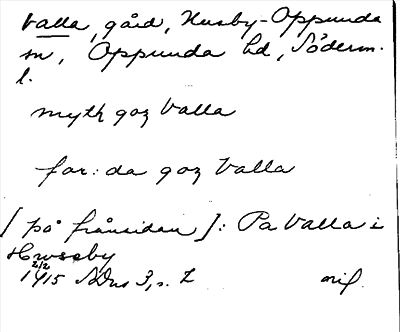 Valla, gård, Husby-Oppunda
sn, Oppunda hd, Söderm.
l.
myth goz Valla
for: da goz Valla
[på frånsidan]: Pa Valla i
Hwsaby
2/2
1415 3, s. 2 orig.